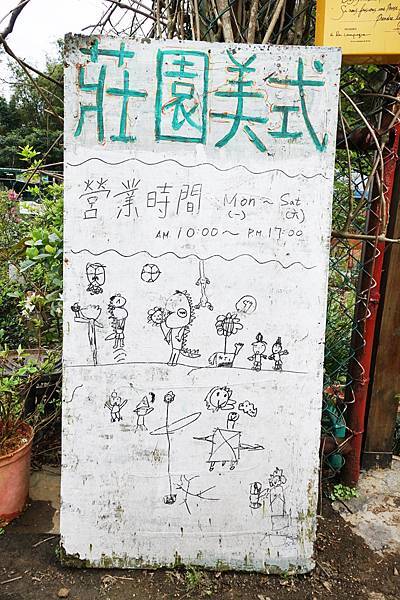 莊園美式
營業時間 Mon～Sat
(一) (六)
AM 10:00～PM 17:00